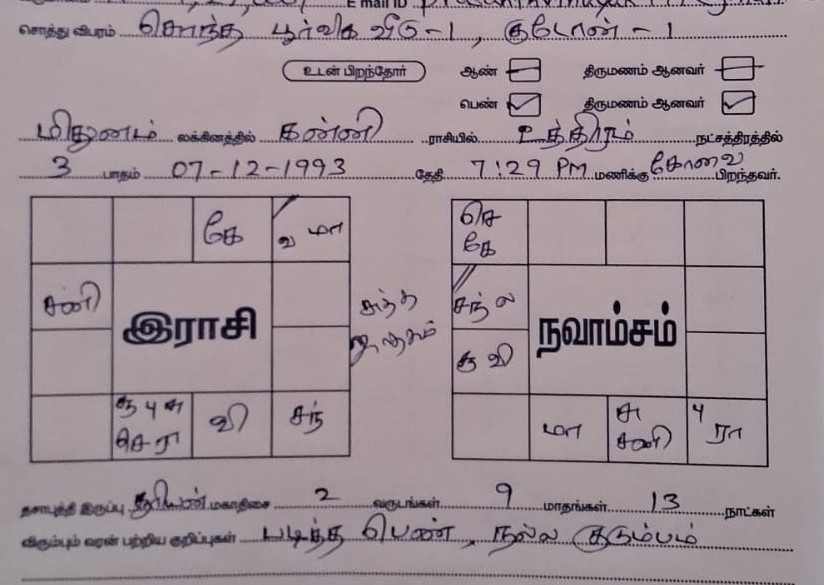 E mail ID
சொத்து விபரம் சொந்த பூர்விக வீடு -1, குடோன் - 1
உடன் பிறந்தோர் ஆண் திருமணம் ஆனவர்
பெண் திருமணம் ஆனவர்
மிதுனம் லக்கினத்தில் கன்னி ராசியில் உத்திரம் நட்சத்திரத்தில்
3 பாதம் 07-12-1993 தேதி 7:29 PM மணிக்கு கோவை பிறந்தவர்.
கே
ல மா
சனி
இராசி
சூ பு சு
செ ரா
வி
சந்
சுத்த
ஜாதகம்
செ
கே
சந் ல
நவாம்சம்
சூ வி
மா
சு
சனி
பு
ரா
தசாபுத்தி இருப்பு சூரியன் மகாதிசை 2 வருடங்கள் 9 மாதங்கள் 13 நாட்கள்
விரும்பும் வரன் பற்றிய குறிப்புகள் படித்த பெண், நல்ல குடும்பம்